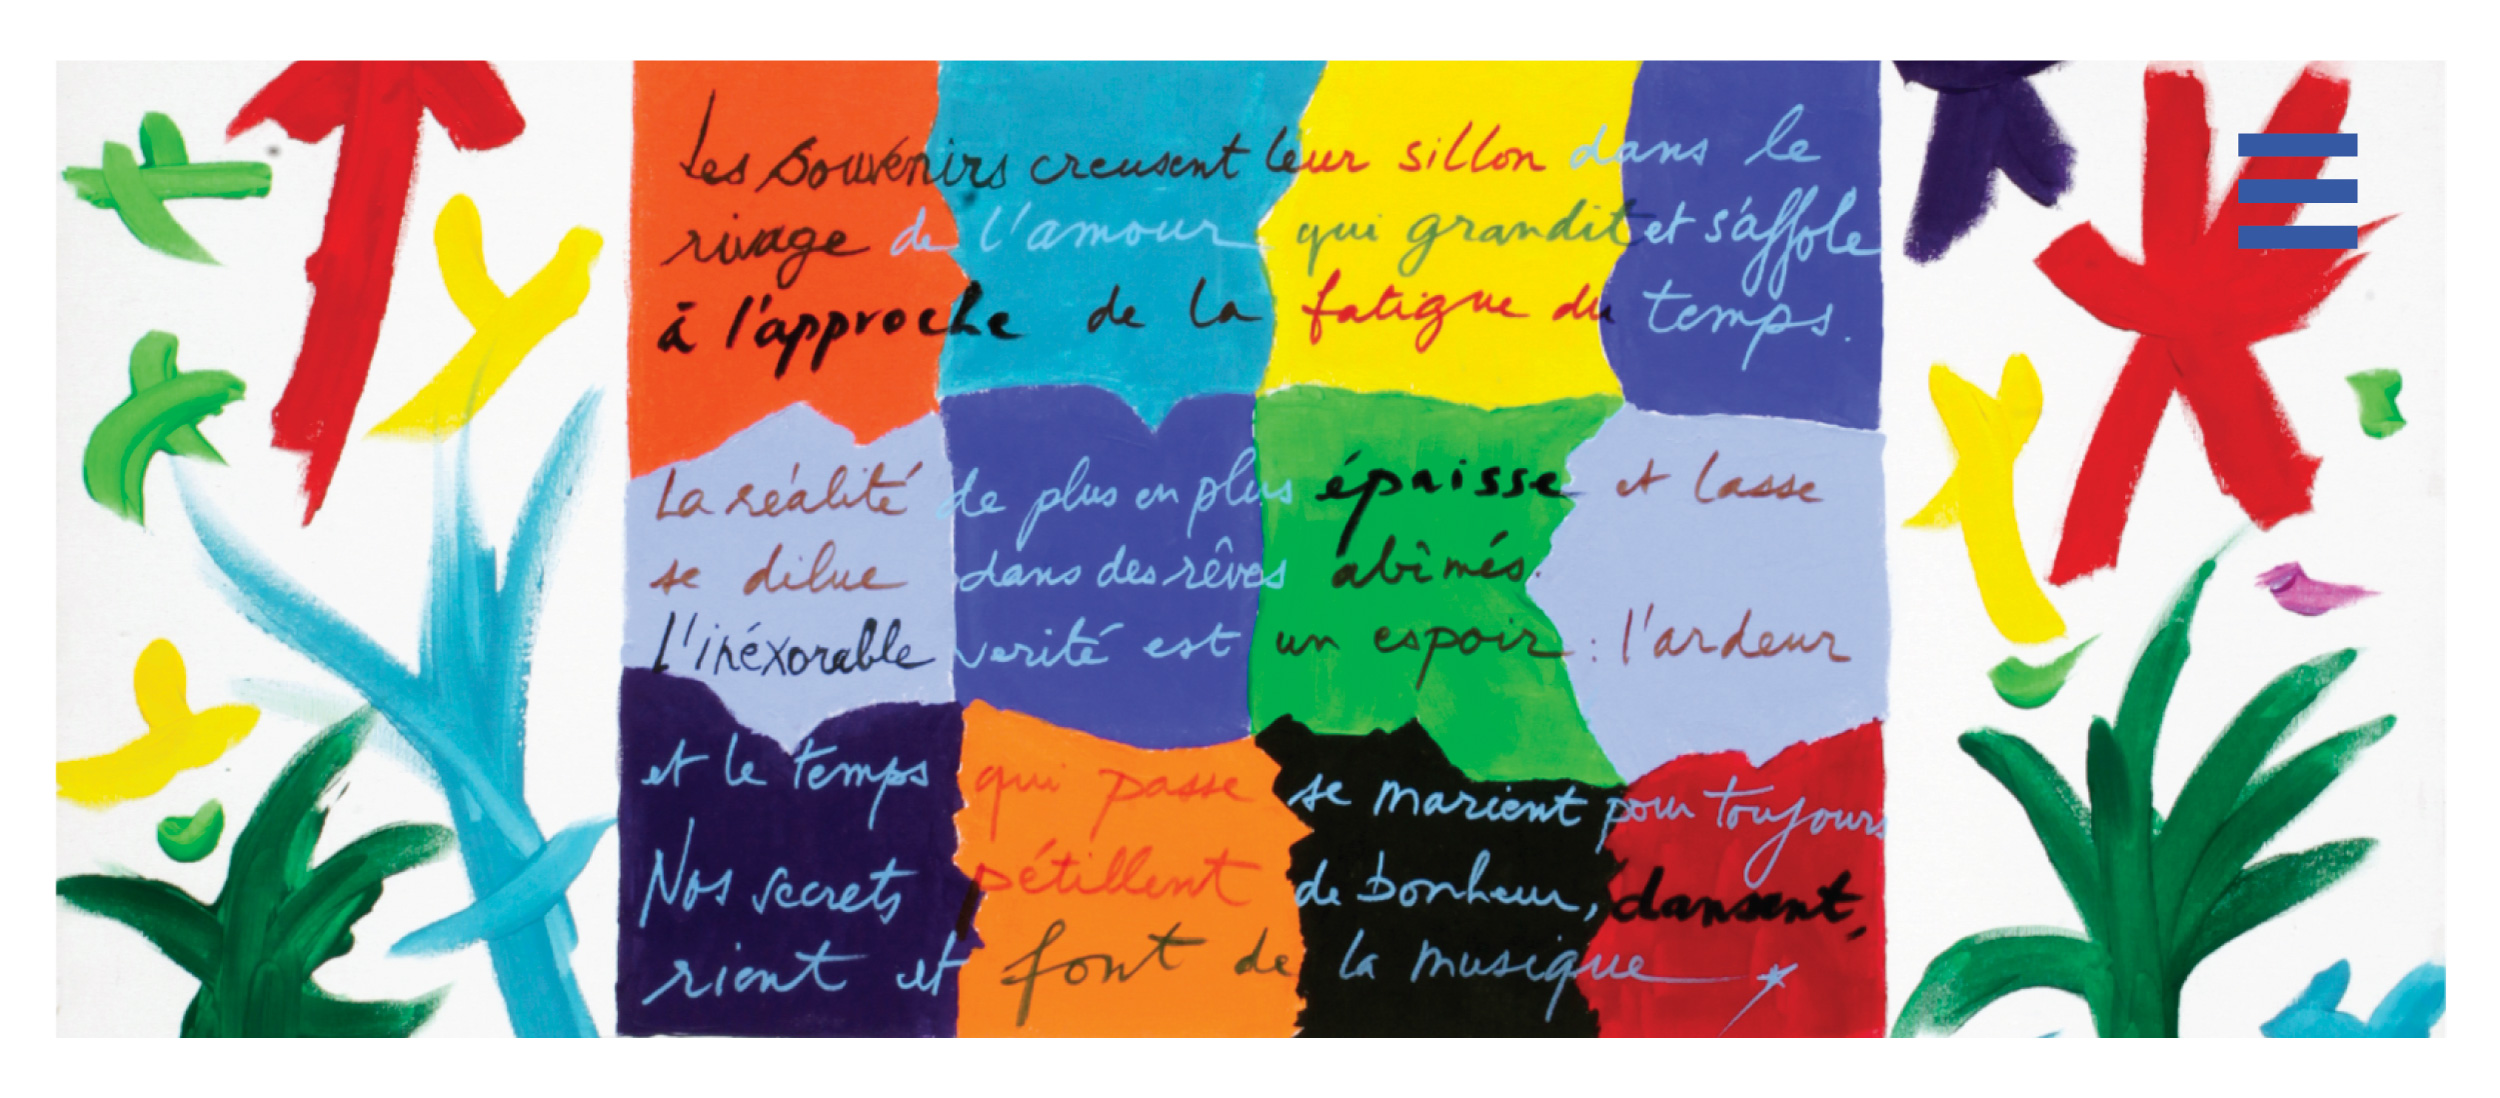 Les souvenirs creusent leur sillon dans le
rivage de l'amour qui grandit et s'affole
à l'approche de la fatigue du temps.
La réalité de plus en plus épaisse et lasse
se dilue dans des rêves abîmés.
L'inéxorable verité est un espoir : l'ardeur
et le temps qui passe se marient pour toujours
Nos secrets pétillent de bonheur, dansent,
rient et font de la musique